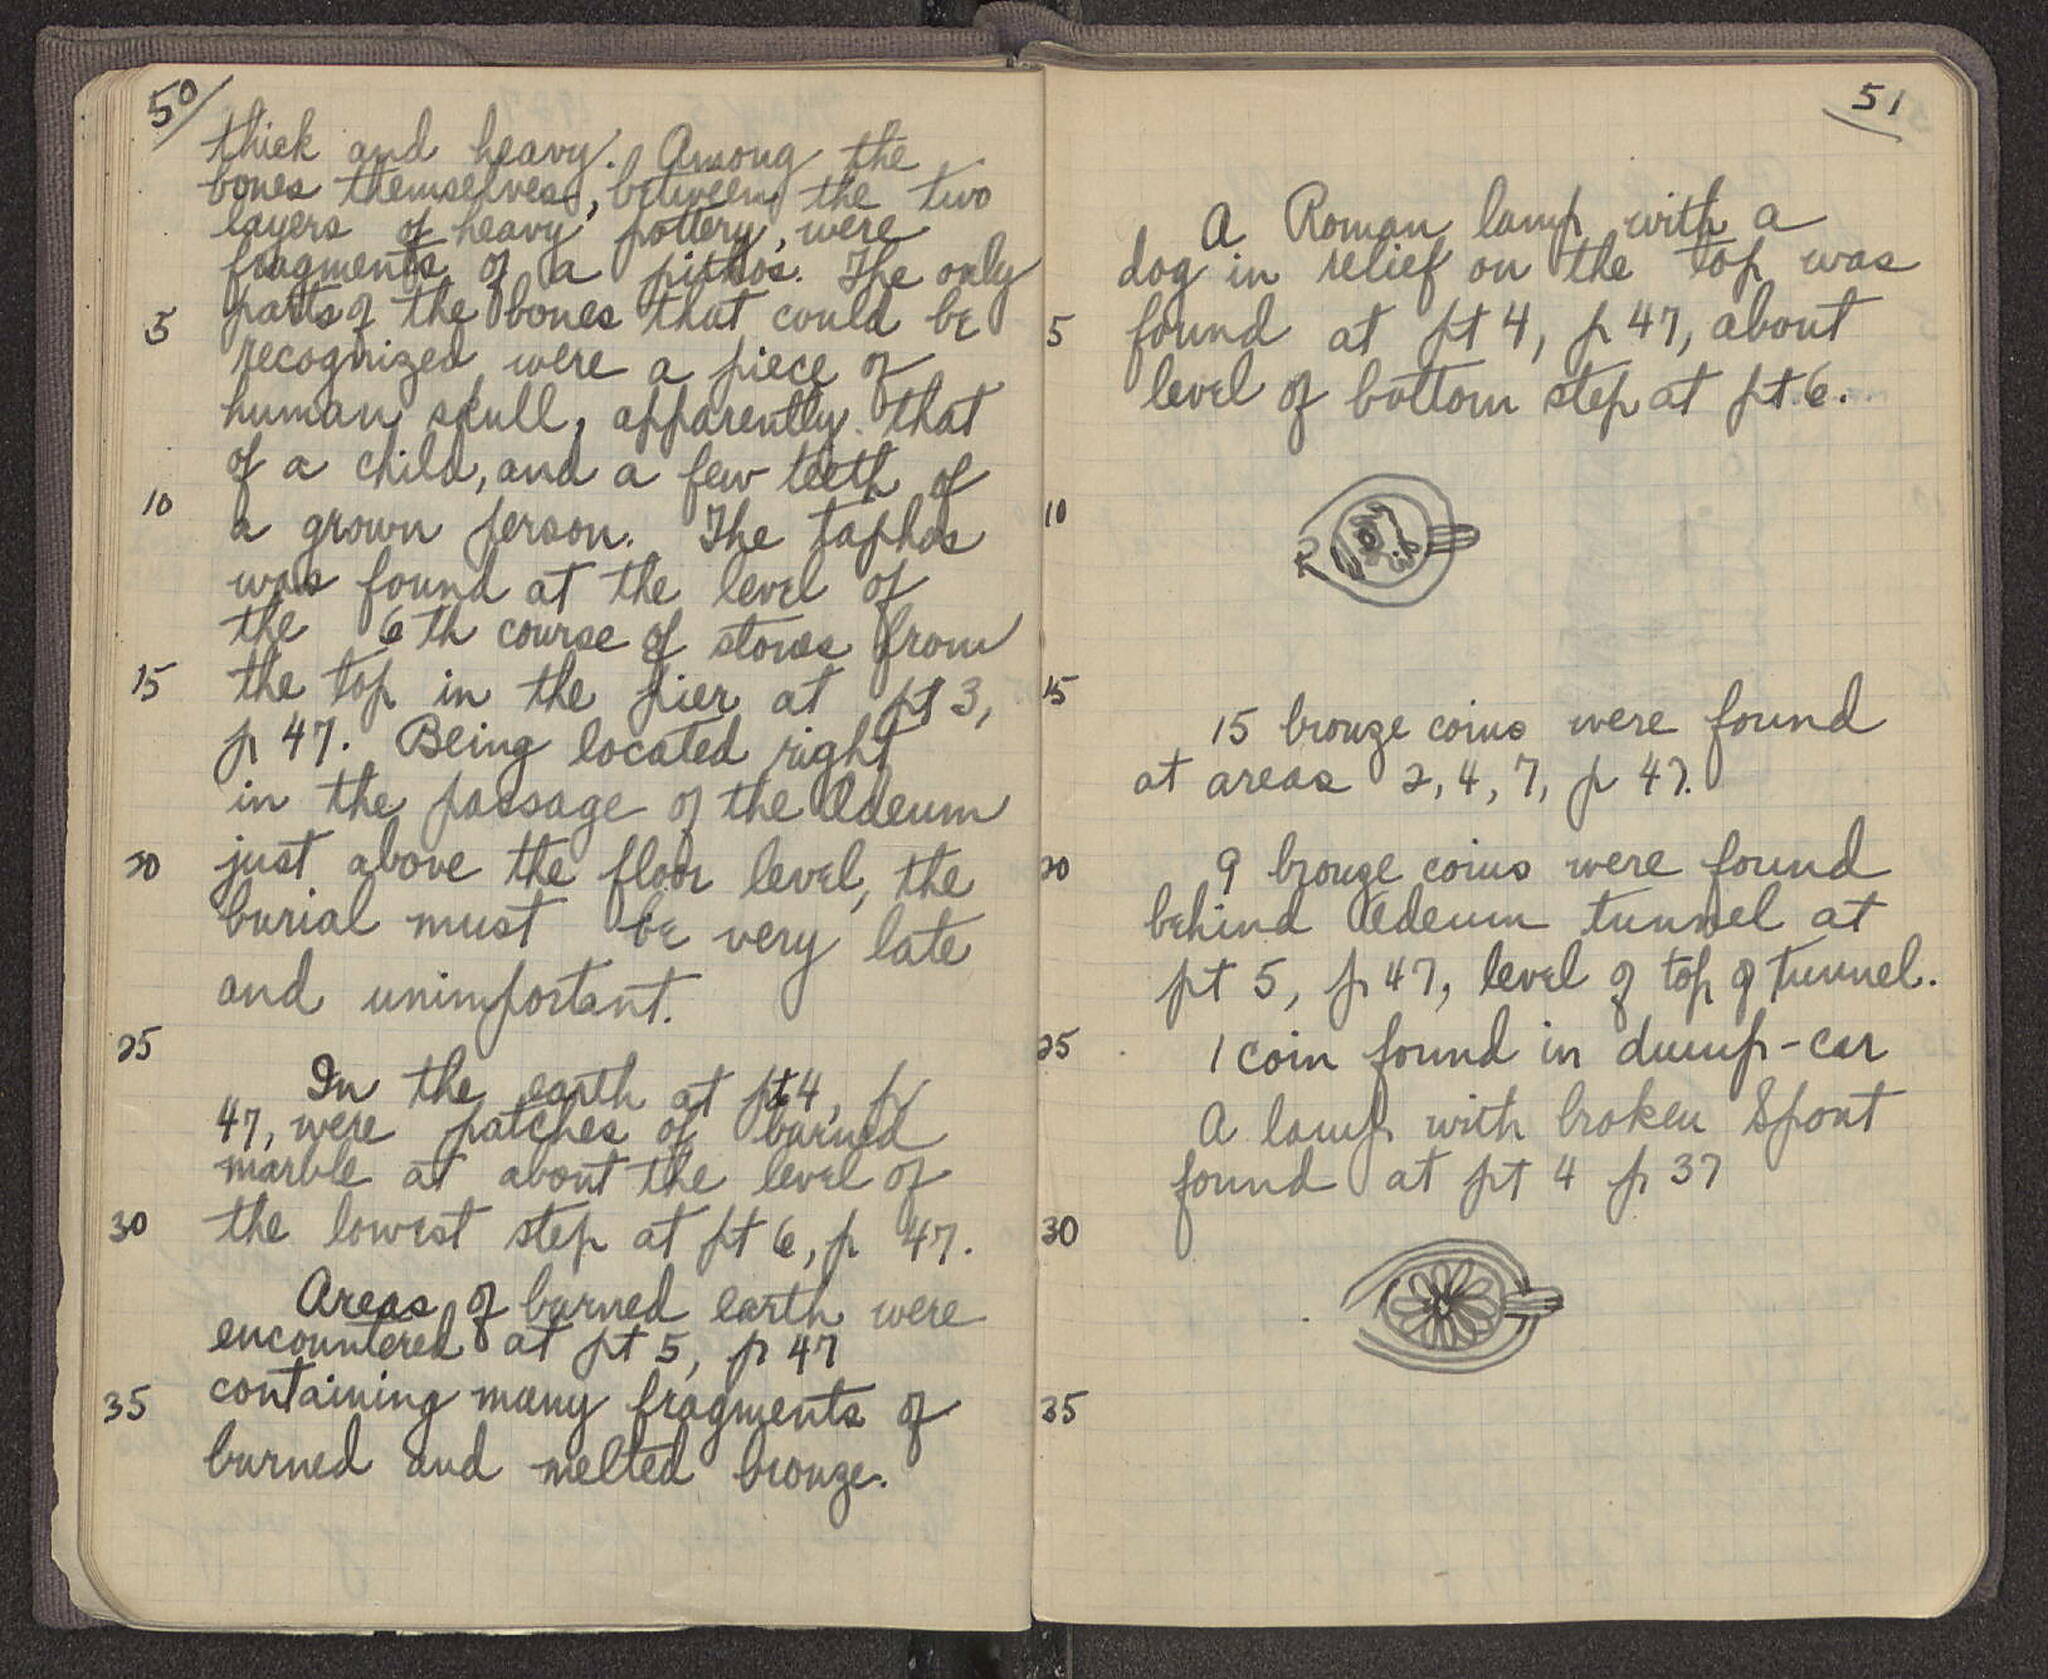 50
thick and heavy. Among the
bones themselves, between the two
layers of heavy pottery, were
fragments of a pithos. The only
5 parts of the bones that could be
recognized were a piece of
human skull, apparently that
of a child, and a few teeth of
10 a grown person. The taphos
was found at the level of
the 6th course of stones from
15 the top in the pier at pt 3,
p 47. Being located right
in the passage of the Odeum
20 just above the floor level, the
burial must be very late
and unimportant.
25
In the earth at pt 4, p
47, were patches of burned
marble at about the level of
30 the lowest step at pt 6, p 47.
Areas of burned earth were
encountered at pt 5, p 47
35 containing many fragments of
burned and melted bronze.
51
A Roman lamp with a
dog in relief on the top was
5 found at pt 4, p 47, about
level of bottom step at pt 6.
10
15
15 bronze coins were found
at areas 2, 4, 7, p 47.
20 9 bronze coins were found
behind Odeum tunnel at
pt 5, p 47, level of top of tunnel.
25 1 coin found in dump-car
A lamp with broken spout
found at pt 4 p 37
30
35